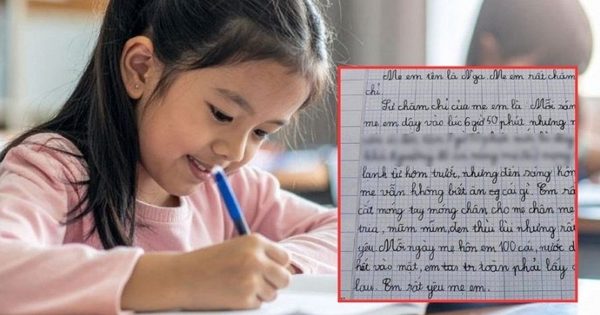 Mẹ em tên là Nga. Mẹ em rất chăm
chỉ.
Sự chăm chỉ của mẹ em là Mỗi sán
mẹ em dậy vào lúc 6 giờ 50 phút nhưng
lạnh từ hôm trước, nhưng đến sáng hôm
mẹ vẫn không biết ăn cái gì. Em rấ
cắt móng tay móng chân cho mẹ chân mẹ
trua, mũm mĩm, đen thùi lùi nhưng rấ
yêu. Mỗi ngày mẹ hôn em 100 cái, nước
hết vào mặt, em toàn phải lấy
lau. Em rất yêu mẹ em.